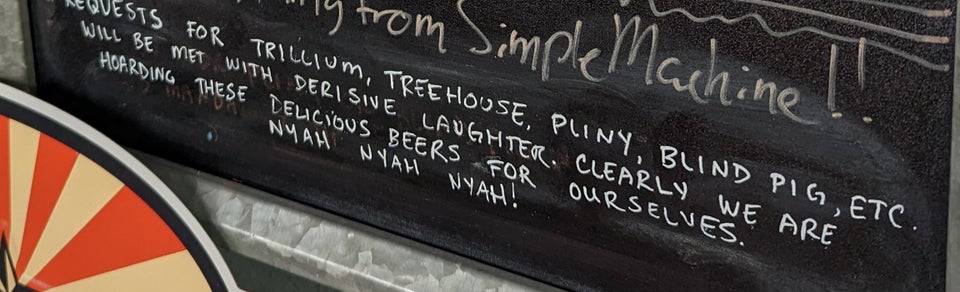 from Simple Machine!!
REQUESTS FOR TRILLIUM, TREEHOUSE, PLINY, BLIND PIG, ETC.
WILL BE MET WITH DERISIVE LAUGHTER. CLEARLY WE ARE
HOARDING THESE DELICIOUS BEERS FOR OURSELVES.
NYAH NYAH NYAH!